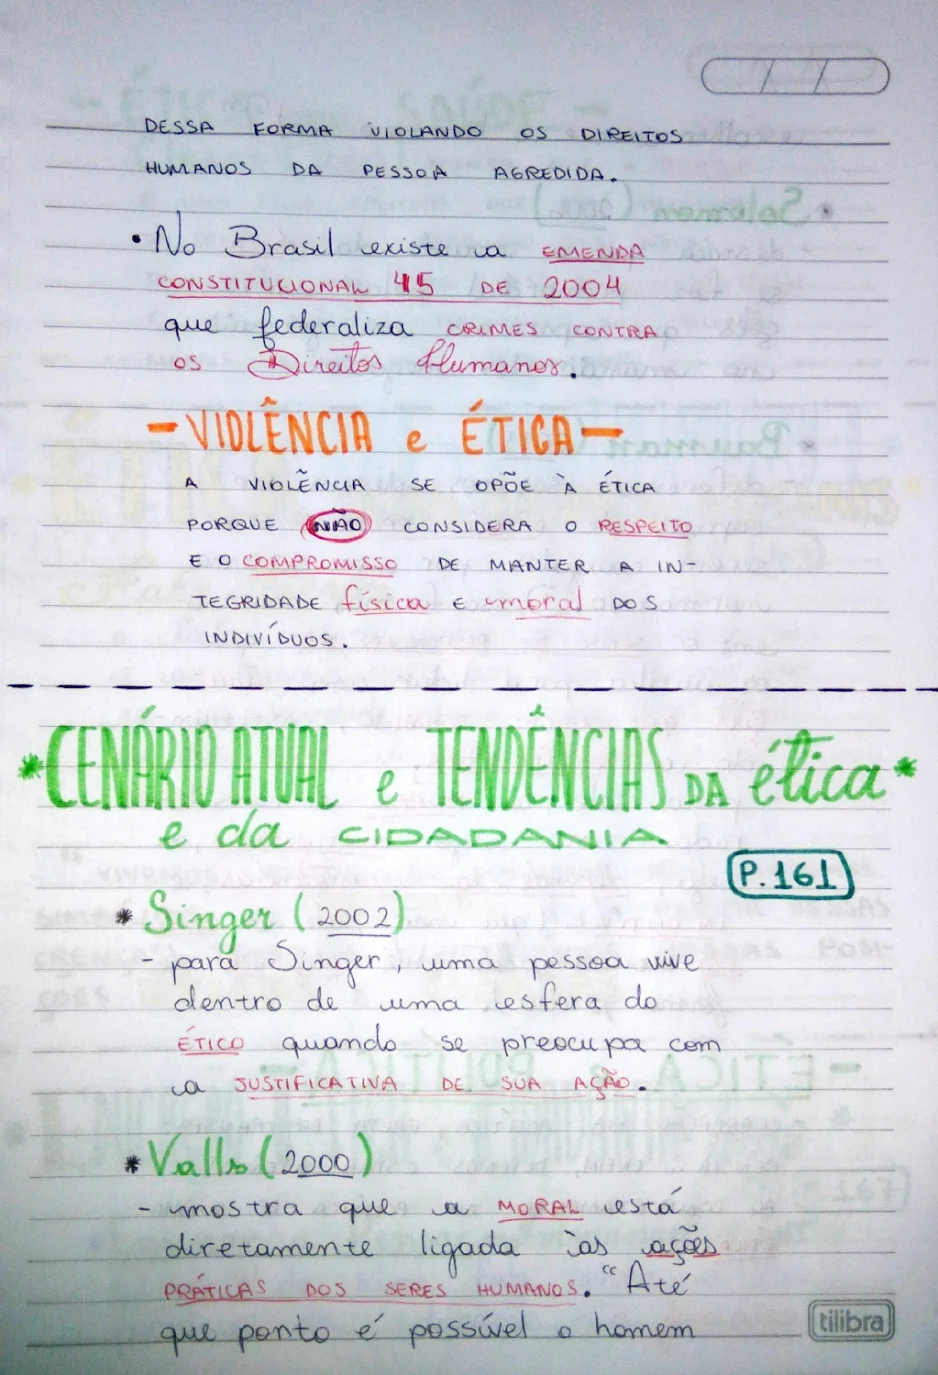 DESSA FORMA VIOLANDO OS DIREITOS
HUMANOS DA PESSOA AGREDIDA.
• No Brasil existe a EMENDA
CONSTITUCIONAL 45 DE 2004
que federaliza CRIMES CONTRA
OS Direitos Humanos.
- VIOLÊNCIA e ÉTICA -
A VIOLÊNCIA SE OPÕE À ÉTICA
PORQUE NÃO CONSIDERA O RESPEITO
E O COMPROMISSO DE MANTER A IN-
TEGRIDADE física E moral DOS
INDIVÍDUOS.
* CENÁRIO ATUAL e TENDÊNCIAS DA ética *
e da CIDADANIA
P. 161
* Singer (2002)
- para Singer, uma pessoa vive
dentro de uma esfera do
ÉTICO quando se preocupa com
a JUSTIFICATIVA DE SUA AÇÃO.
* Valls (2000)
- mostra que a MORAL está
diretamente ligada às ações
PRÁTICAS DOS SERES HUMANOS. "Até
que ponto é possível o homem
tilibra